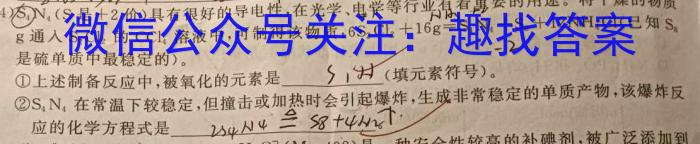 4)S₄N₄(S 具有很好的导电性,在光学、电学等行业有着重要的用途。将干燥的物质
g通入 溶液中,可制得该物质, 6S Cl +16g 已知S₈
微信公众号关注:趣找答案
是硫单质中最稳定的)。
①上述制备反应中,被氧化的元素是 S,N (填元素符号)。
②S₄N₄ 在常温下较稳定,但撞击或加热时会引起爆炸,生成非常稳定的单质产物,该爆炸反
应的化学方程式是 2S4N4 ≜ S8+4N2↑.
种安全性较高的补碘剂,被广泛添加到